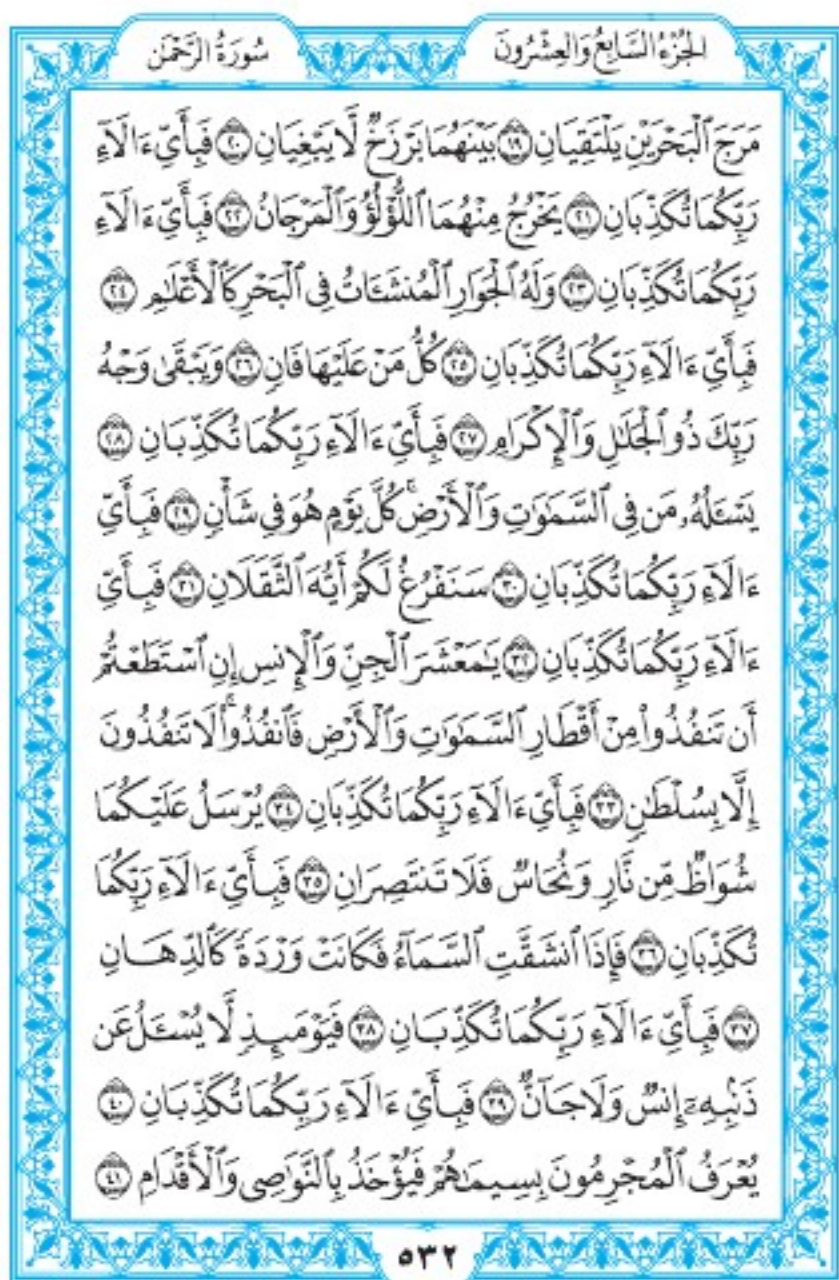 الجُزْءُ السَّابِعُ وَالعِشْرُونَ
سُورَةُ الرَّحْمٰن
مَرَجَ ٱلْبَحْرَيْنِ يَلْتَقِيَانِ ١٩ بَيْنَهُمَا بَرْزَخٌ لَّا يَبْغِيَانِ ٢٠ فَبِأَيِّ ءَالَآءِ
رَبِّكُمَا تُكَذِّبَانِ ٢١ يَخْرُجُ مِنْهُمَا ٱللُّؤْلُؤُ وَٱلْمَرْجَانُ ٢٢ فَبِأَيِّ ءَالَآءِ
رَبِّكُمَا تُكَذِّبَانِ ٢٣ وَلَهُ ٱلْجَوَارِ ٱلْمُنشَـَٔاتُ فِى ٱلْبَحْرِ كَٱلْأَعْلَٰمِ ٢٤
فَبِأَيِّ ءَالَآءِ رَبِّكُمَا تُكَذِّبَانِ ٢٥ كُلُّ مَنْ عَلَيْهَا فَانٍ ٢٦ وَيَبْقَىٰ وَجْهُ
رَبِّكَ ذُو ٱلْجَلَٰلِ وَٱلْإِكْرَامِ ٢٧ فَبِأَيِّ ءَالَآءِ رَبِّكُمَا تُكَذِّبَانِ ٢٨
يَسْـَٔلُهُۥ مَن فِى ٱلسَّمَٰوَٰتِ وَٱلْأَرْضِۚ كُلَّ يَوْمٍ هُوَ فِى شَأْنٍ ٢٩ فَبِأَيِّ
ءَالَآءِ رَبِّكُمَا تُكَذِّبَانِ ٣٠ سَنَفْرُغُ لَكُمْ أَيُّهَ ٱلثَّقَلَانِ ٣١ فَبِأَيِّ
ءَالَآءِ رَبِّكُمَا تُكَذِّبَانِ ٣٢ يَٰمَعْشَرَ ٱلْجِنِّ وَٱلْإِنسِ إِنِ ٱسْتَطَعْتُمْ
أَن تَنفُذُوا۟ مِنْ أَقْطَارِ ٱلسَّمَٰوَٰتِ وَٱلْأَرْضِ فَٱنفُذُوا۟ۚ لَا تَنفُذُونَ
إِلَّا بِسُلْطَٰنٍ ٣٣ فَبِأَيِّ ءَالَآءِ رَبِّكُمَا تُكَذِّبَانِ ٣٤ يُرْسَلُ عَلَيْكُمَا
شُوَاظٌ مِّن نَّارٍ وَنُحَاسٌ فَلَا تَنتَصِرَانِ ٣٥ فَبِأَيِّ ءَالَآءِ رَبِّكُمَا
تُكَذِّبَانِ ٣٦ فَإِذَا ٱنشَقَّتِ ٱلسَّمَآءُ فَكَانَتْ وَرْدَةً كَٱلدِّهَانِ
٣٧ فَبِأَيِّ ءَالَآءِ رَبِّكُمَا تُكَذِّبَانِ ٣٨ فَيَوْمَئِذٍ لَّا يُسْـَٔلُ عَن
ذَنۢبِهِۦٓ إِنسٌ وَلَا جَآنٌّ ٣٩ فَبِأَيِّ ءَالَآءِ رَبِّكُمَا تُكَذِّبَانِ ٤٠
يُعْرَفُ ٱلْمُجْرِمُونَ بِسِيمَٰهُمْ فَيُؤْخَذُ بِٱلنَّوَٰصِى وَٱلْأَقْدَامِ ٤١
٥٣٢